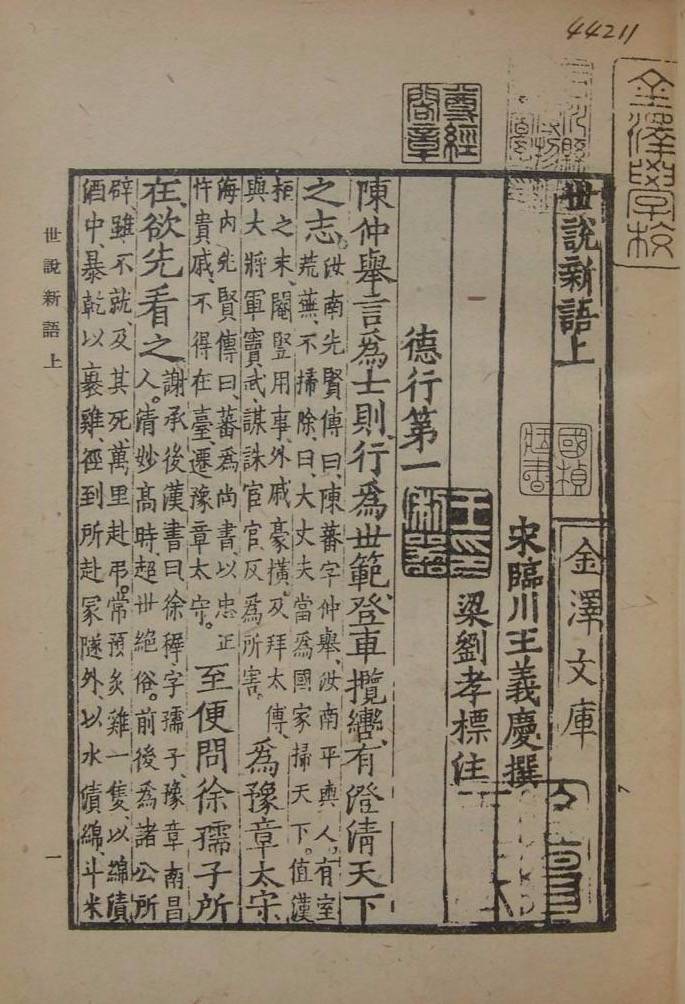 44211
金澤學校
尊經閣章
世說新語上
金澤文庫
國楨
宋臨川王義慶撰
梁劉孝標注
德行第一
陳仲舉言爲士則、行爲世範、登車攬轡、有澄清天下
之志。
汝南先賢傳曰、陳蕃字仲舉、汝南平輿人、有室
荒蕪、不掃除、曰、大丈夫當爲國家掃天下。值漢
桓之末、閹豎用事、外戚豪橫、及拜太傅、
與大將軍竇武、謀誅宦官、反爲所害。
爲豫章太守
海内先賢傳曰、蕃爲尚書、以忠正
忤貴戚、不得在臺、遷豫章太守。
至便問徐孺子所
在、欲先看之、
謝承後漢書曰、徐穉字孺子、豫章南昌
人。清妙高時、超世絕俗。前後爲諸公所
辟、雖不就、及其死、萬里赴弔。常預炙雞一隻、以綿漬
酒中、暴乾以裹雞、徑到所赴冢隧外、以水漬綿、斗米
世說新語上
一